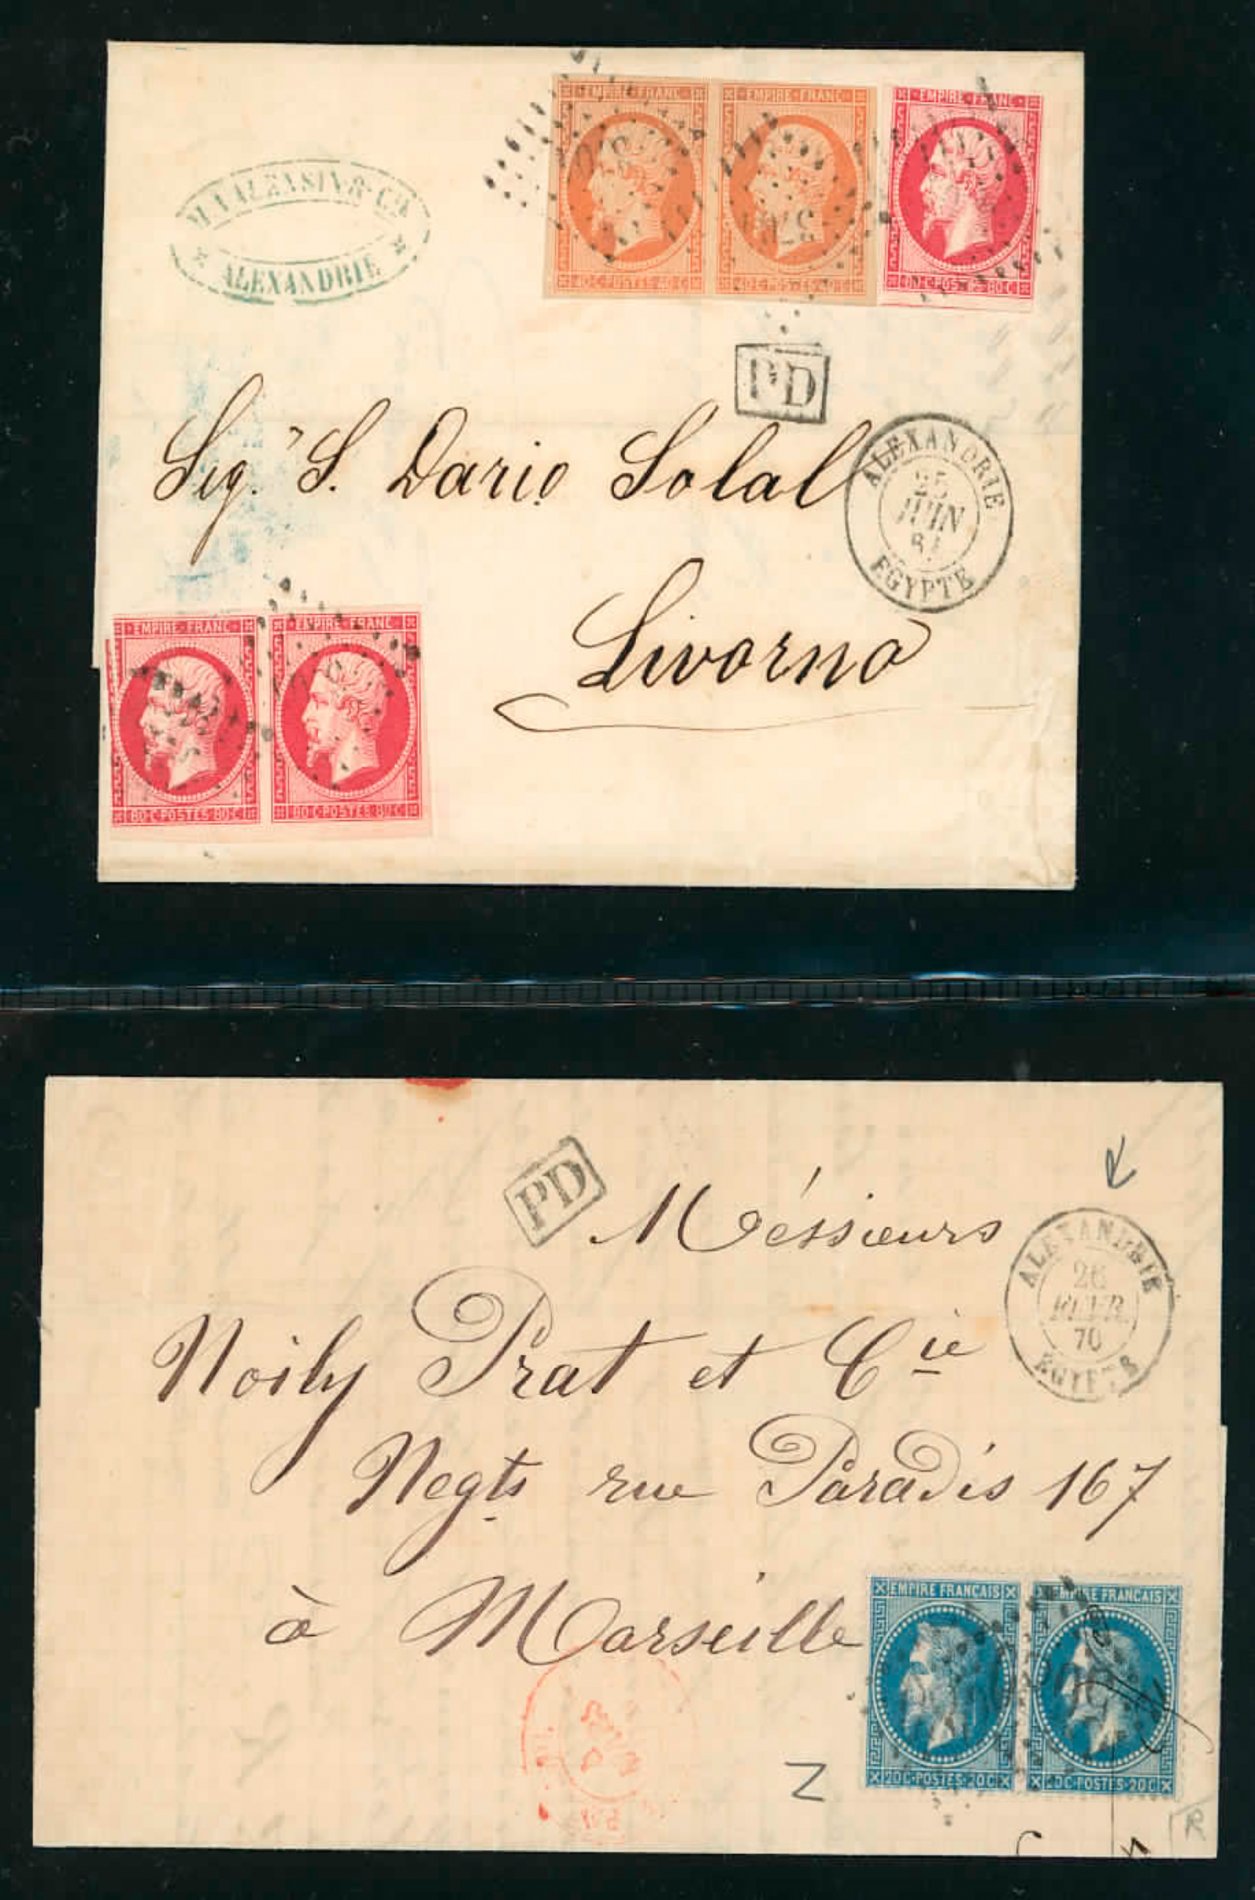 ALEXANDRIE
EMPIRE · FRANC ·
40 · C · POSTES · 40 · C
EMPIRE · FRANC ·
40 · C · POSTES · 40 · C
EMPIRE · FRANC ·
80 · C
PD
Sig.r S. Dario Solal
ALEXANDRIE
25
JUIN
EGYPTE
Livorno
EMPIRE · FRANC ·
80 · C · POSTES · 80 · C
EMPIRE · FRANC ·
80 · C · POSTES · 80 · C
PD
Méssieurs
ALEXANDRIE
26
70
EGYPTE
Noilly Prat et Cie
Negts rue Paradis 167
à Marseille
EMPIRE FRANÇAIS
20 C · POSTES · 20 C
EMPIRE FRANÇAIS
20 C · POSTES · 20 C
Z
R